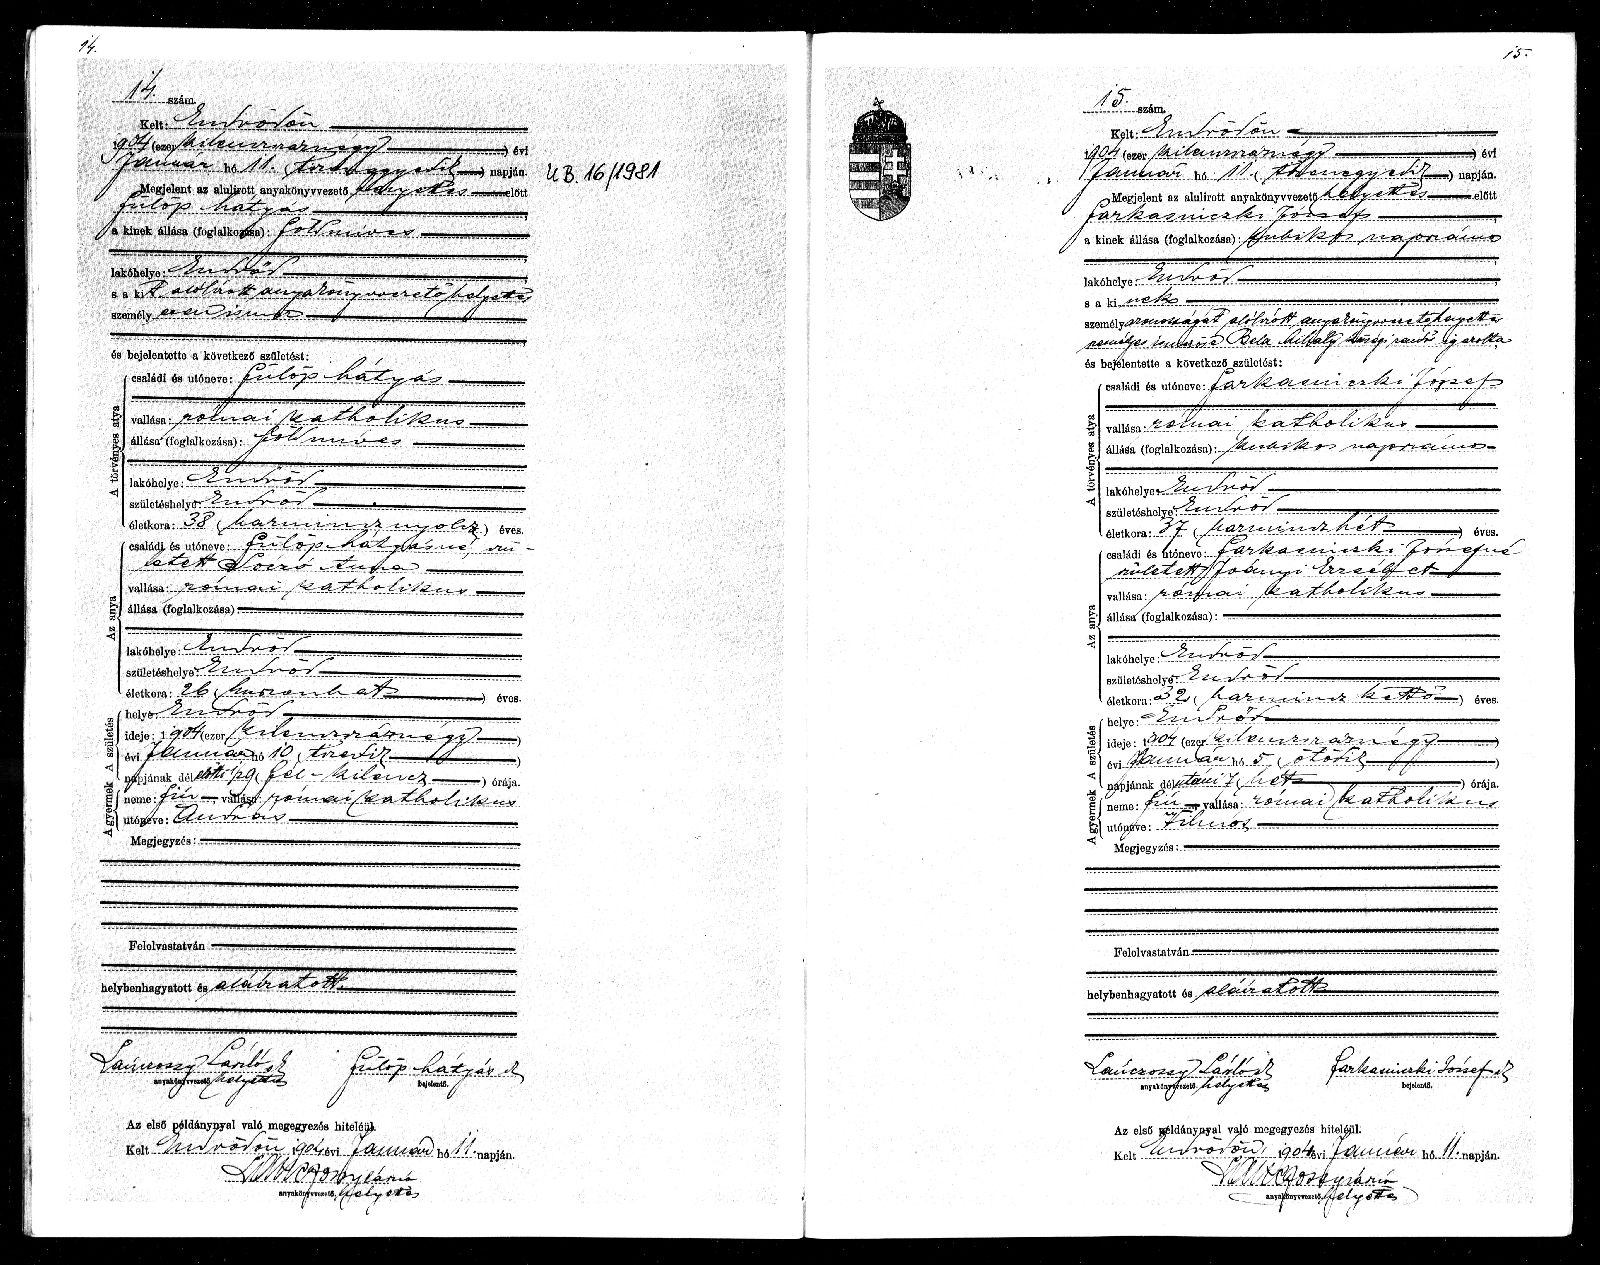 14.
14. szám.
Kelt: Endrődön
1904 (ezer kilenczszáznégy) évi
Január hó 11. (tizenegyedik) napján.
Megjelent az alulirott anyakönyvvezető helyettes előtt
Fülöp Mátyás
a kinek állása (foglalkozása): földmives
lakóhelye: Endrőd
s a kit alólirott anyakönyvvezető helyettes
személyesen ismer
és bejelentette a következő születést:
A törvényes atya
családi és utóneve: Fülöp Mátyás
vallása: római katholikus
állása (foglalkozása): földmives
lakóhelye: Endrőd
születéshelye: Endrőd
életkora: 38 (harmincznyolcz) éves.
Az anya
családi és utóneve: Fülöp Mátyásné, szü-
letett Anna
vallása: római katholikus
állása (foglalkozása):
lakóhelye: Endrőd
születéshelye: Endrőd
életkora: 26 (huszonhat) éves.
A gyermek A születés
helye: Endrőd
ideje: 1904 (ezer kilenczszáznégy)
évi Január hó 10 (tizedik)
napjának délelőtti ½9 (fél-kilencz) órája.
neme: fiú vallása: római katholikus
utóneve: András
Megjegyzés:
Felolvastatván
helybenhagyatott és aláiratott.
László sk Fülöp Mátyás sk
anyakönyvvezető helyettes bejelentő.
Az első példánynyal való megegyezés hiteléül.
Kelt Endrődön, 1904 évi Január hó 11. napján.
anyakönyvvezető helyettes
U.B. 16/1981
15.
15. szám.
Kelt: Endrődön
1904 (ezer kilenczszáznégy) évi
Január hó 11. (tizenegyedik) napján.
Megjelent az alulirott anyakönyvvezető helyettes előtt
Farkasinszki József
a kinek állása (foglalkozása): kubikos napszámos
lakóhelye: Endrőd
s a ki nek
személyazonosságát alólirott anyakönyvvezető helyettes
személyes ismerőse Bela Mihály községi rendőr igazolta
és bejelentette a következő születést:
A törvényes atya
családi és utóneve: Farkasinszki József
vallása: római katholikus
állása (foglalkozása): kubikos napszámos
lakóhelye: Endrőd
születéshelye: Endrőd
életkora: 37 (harminczhét) éves.
Az anya
családi és utóneve: Farkasinszki Józsefné
született Erzsébet
vallása: római katholikus
állása (foglalkozása):
lakóhelye: Endrőd
születéshelye: Endrőd
életkora: 32 (harmincz kettő) éves.
A gyermek A születés
helye: Endrőd
ideje: 1904 (ezer kilenczszáznégy)
évi Január hó 5 (ötödik)
napjának délutáni 7 (hét) órája.
neme: fiú vallása: római katholikus
utóneve: Vilmos
Megjegyzés:
Felolvastatván
helybenhagyatott és aláiratott
László sk Farkasinszki József sk
anyakönyvvezető helyettes bejelentő.
Az első példánynyal való megegyezés hiteléül.
Kelt Endrődön, 1904 évi Január hó 11. napján.
anyakönyvvezető helyettes